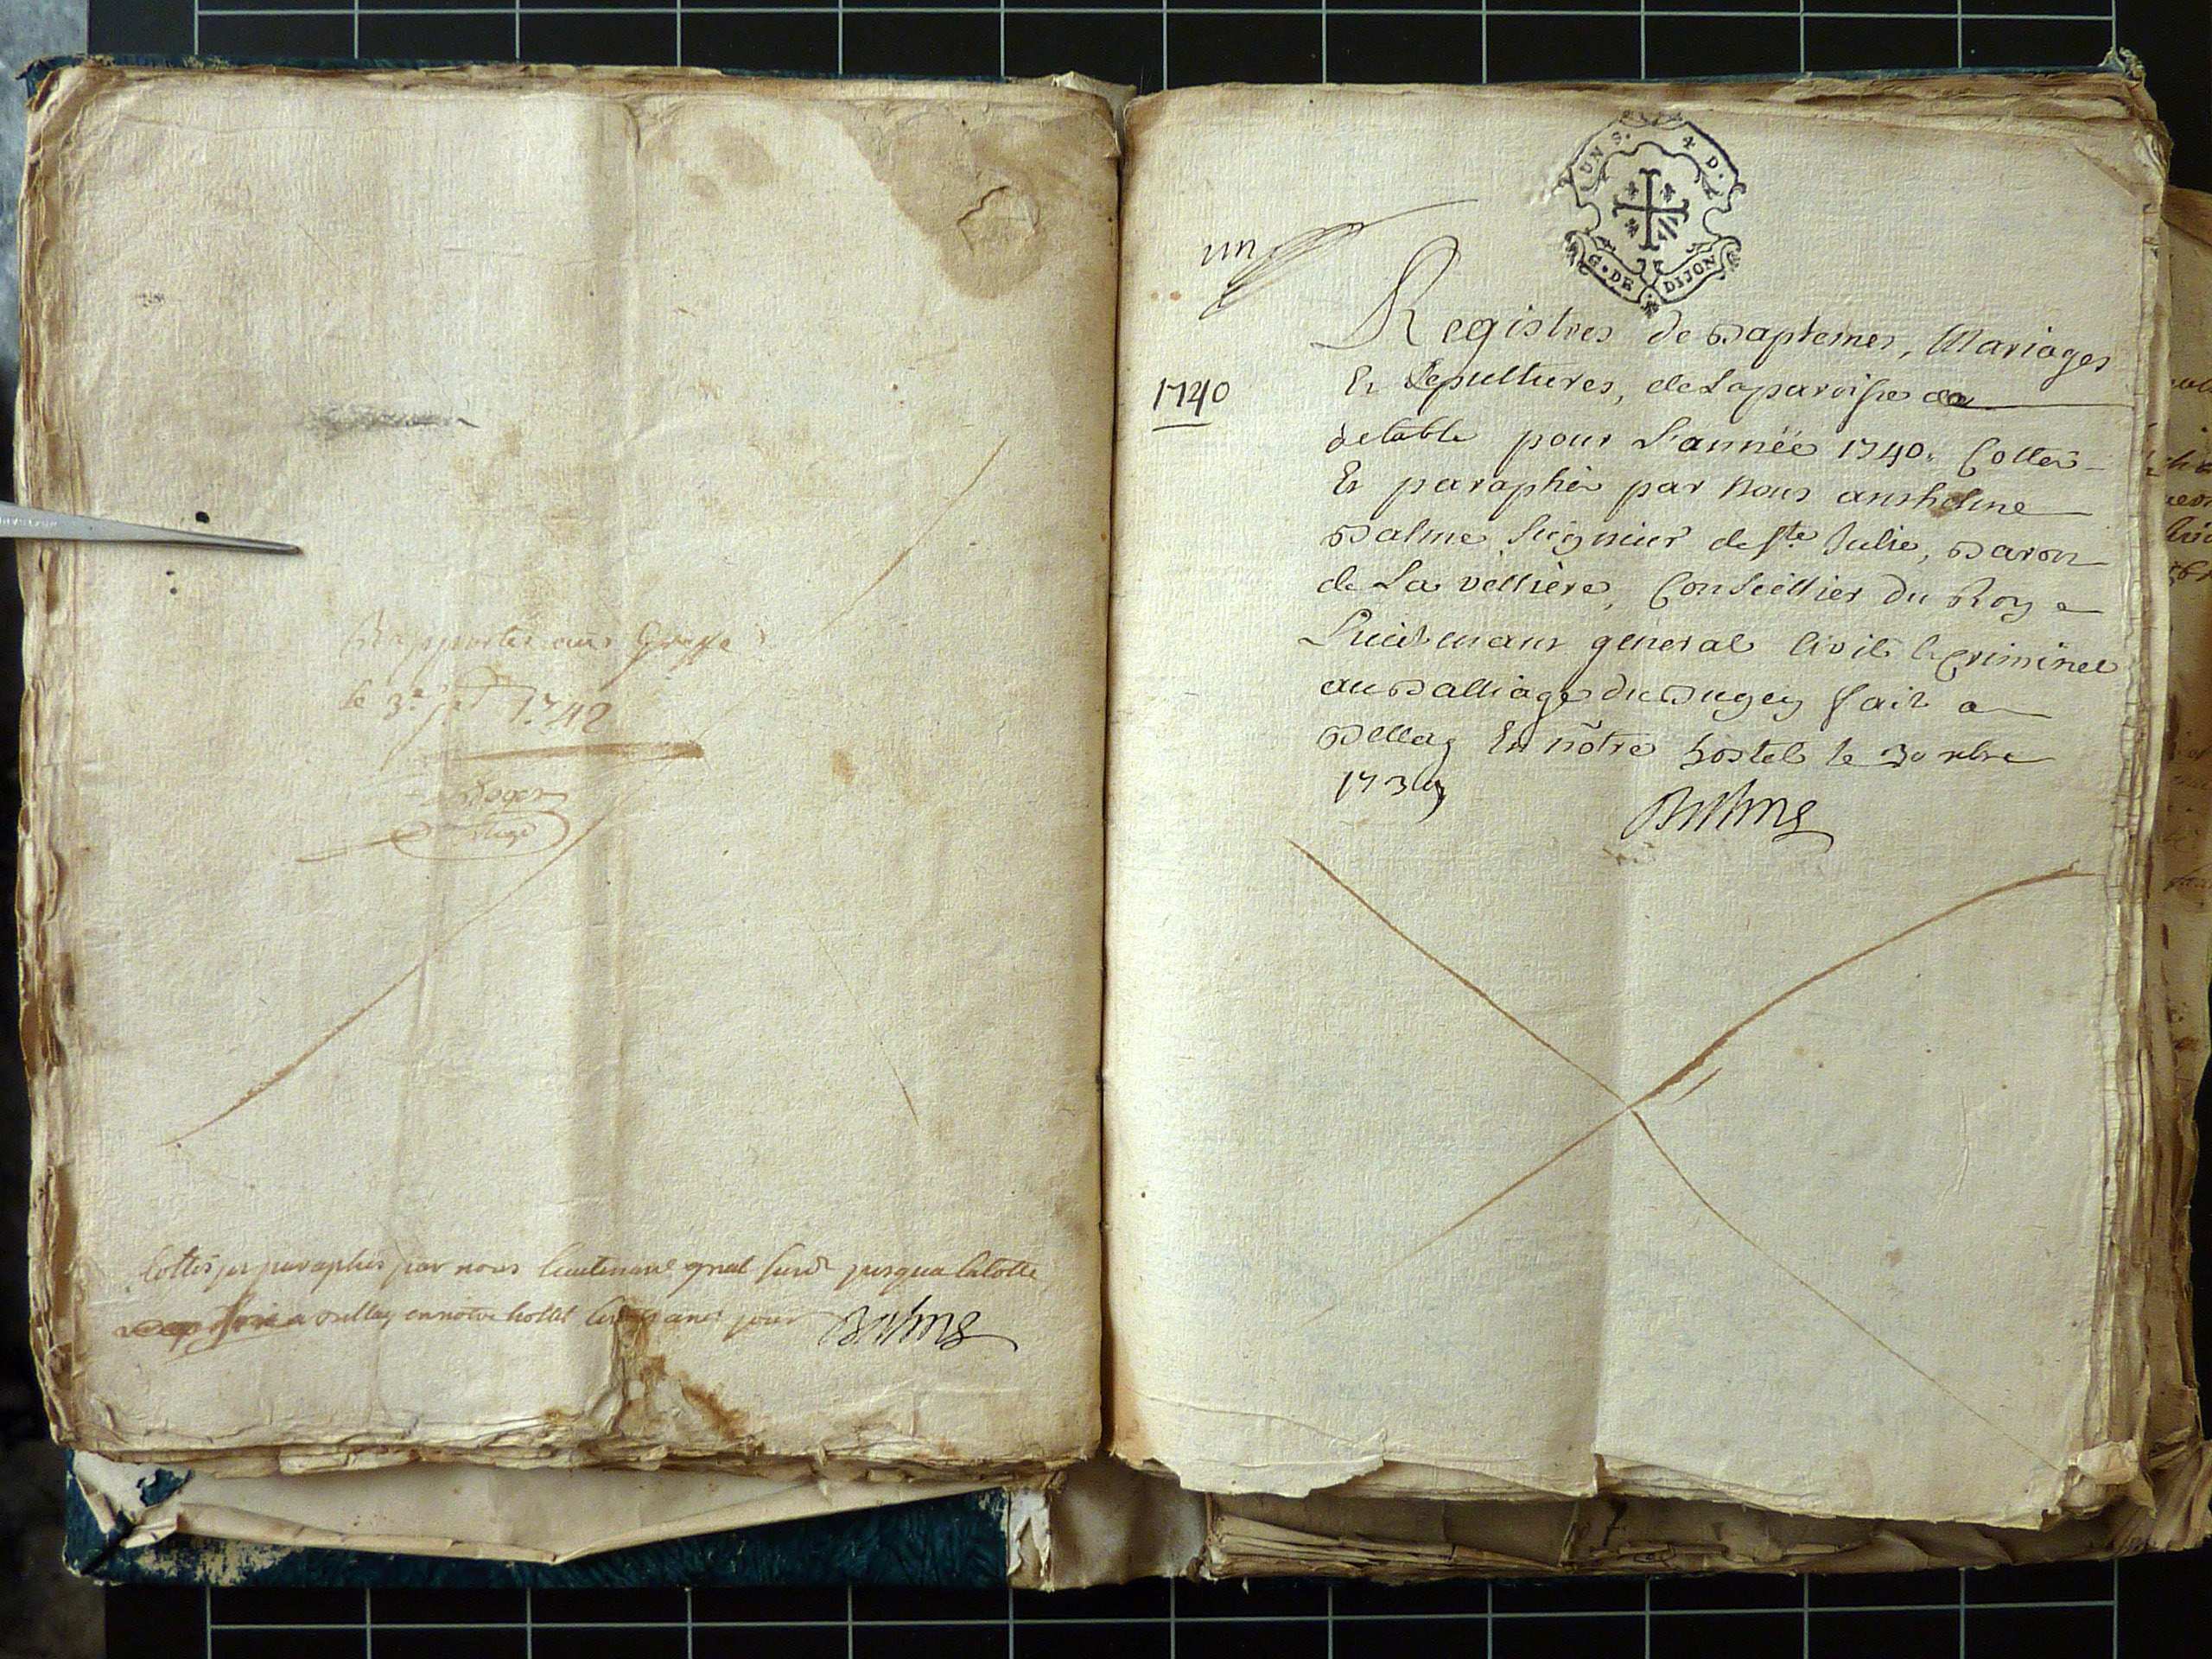 Rapportés au Greffe
le 3e 1742
Cottés et paraphés par nous lieutenant gnal jusqua la cotte
a Bellay en notre hostel jour Balme
UN S. 4 D.
G. DE DIJON
un
Registres de Baptemes, Mariages
1740
Et Sepultures, de La paroisse de
detable pour L'année 1740. Cottés
Et paraphés par Nous anthelme
Balme Seigneur de Ste Julie, Baron
de La vellière, Conseillier du Roy
Lieutenant general Civil & Criminel
au Balliage du Bugey fait a
Bellay En nôtre hostel le 30 xbre
1739
Balme